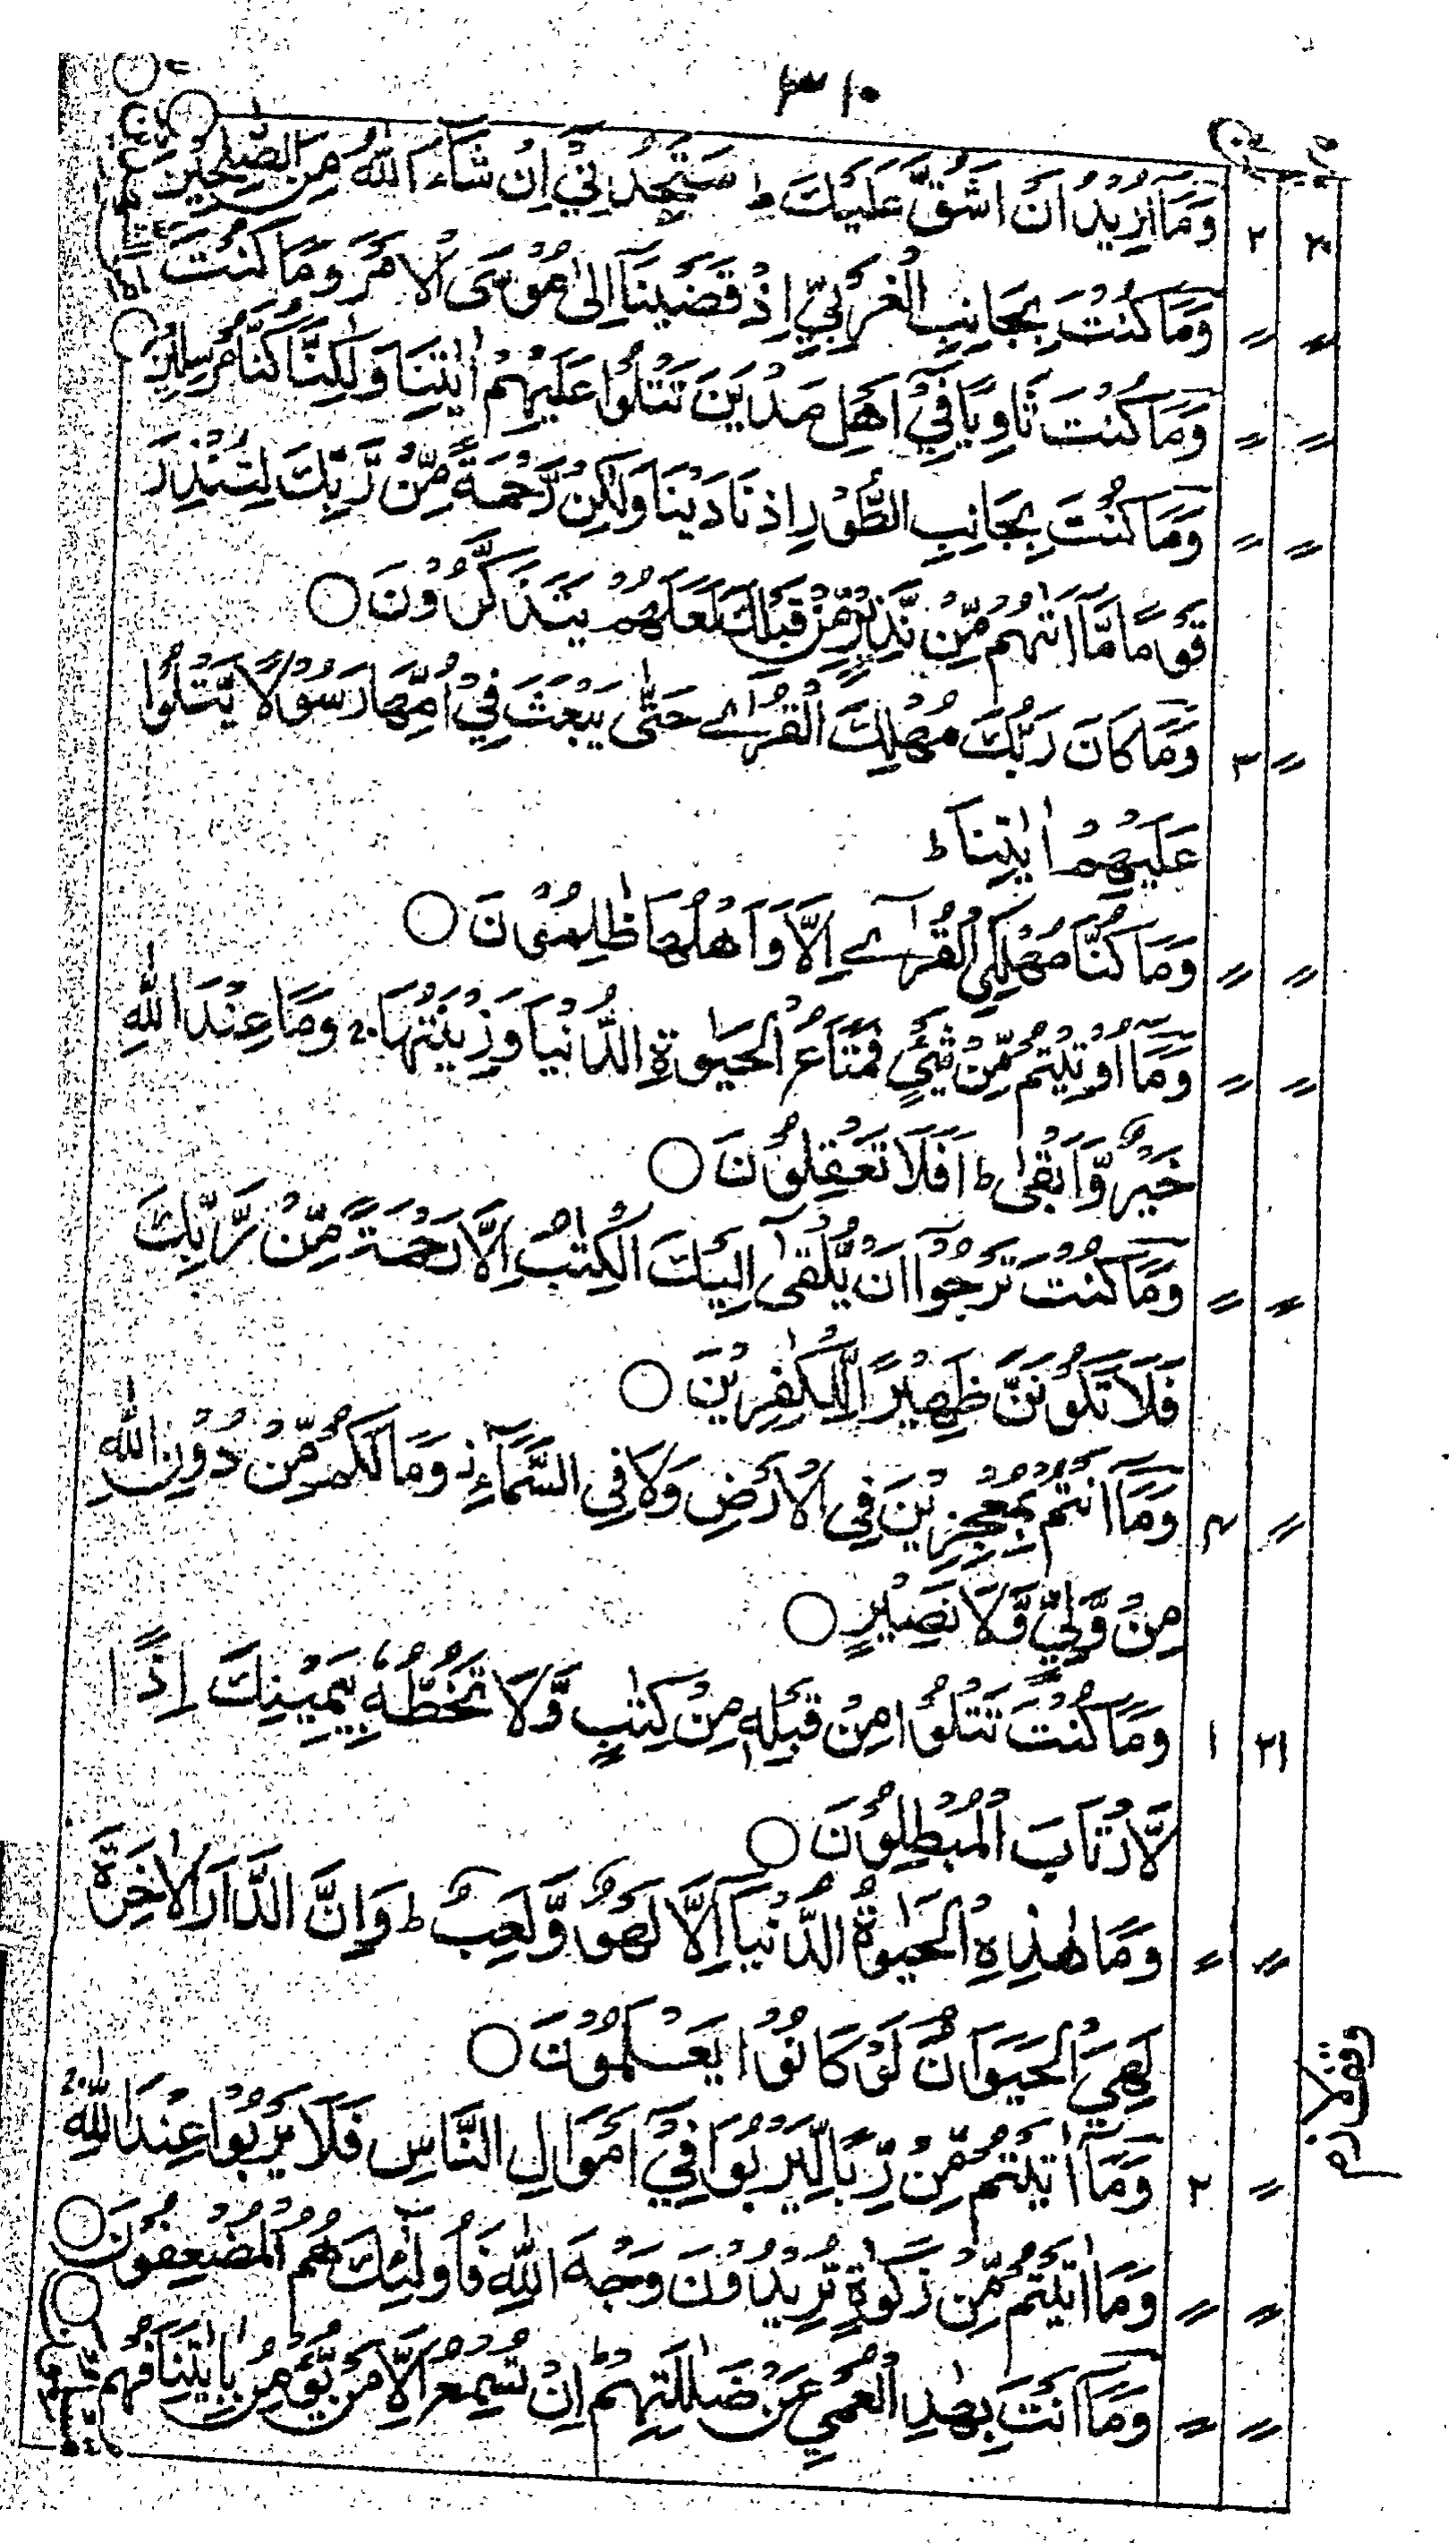 ٣١٠
وَمَآ اُرِيْدُ اَنْ اَشُقَّ عَلَيْكَ ط سَتَجِدُنِيْٓ اِنْ شَآءَ اللّٰهُ مِنَ الصّٰلِحِيْنَ ○
وَمَا كُنْتَ بِجَانِبِ الْغَرْبِيِّ اِذْ قَضَيْنَآ اِلٰى مُوْسَى الْاَمْرَ وَمَا كُنْتَ
وَمَا كُنْتَ ثَاوِيًا فِيْٓ اَهْلِ مَدْيَنَ تَتْلُوْا عَلَيْهِمْ اٰيٰتِنَا وَلٰكِنَّا كُنَّا مُرْسِلِيْنَ ○
وَمَا كُنْتَ بِجَانِبِ الطُّوْرِ اِذْ نَادَيْنَا وَلٰكِنْ رَّحْمَةً مِّنْ رَّبِّكَ لِتُنْذِرَ
قَوْمًا مَّآ اَتٰهُمْ مِّنْ نَّذِيْرٍ مِّنْ قَبْلِكَ لَعَلَّهُمْ يَتَذَكَّرُوْنَ ○
وَمَا كَانَ رَبُّكَ مُهْلِكَ الْقُرٰے حَتّٰى يَبْعَثَ فِيْٓ اُمِّهَا رَسُوْلًا يَّتْلُوْا
عَلَيْهِمْ اٰيٰتِنَا ط
وَمَا كُنَّا مُهْلِكِي الْقُرٰٓے اِلَّا وَاَهْلُهَا ظٰلِمُوْنَ ○
وَمَآ اُوْتِيْتُمْ مِّنْ شَيْءٍ فَمَتَاعُ الْحَيٰوةِ الدُّنْيَا وَزِيْنَتُهَا وَمَا عِنْدَ اللّٰهِ
خَيْرٌ وَّاَبْقٰى ط اَفَلَا تَعْقِلُوْنَ ○
وَمَا كُنْتَ تَرْجُوْٓا اَنْ يُّلْقٰٓى اِلَيْكَ الْكِتٰبُ اِلَّا رَحْمَةً مِّنْ رَّبِّكَ
فَلَا تَكُوْنَنَّ ظَهِيْرًا لِّلْكٰفِرِيْنَ ○
وَمَآ اَنْتُمْ بِمُعْجِزِيْنَ فِى الْاَرْضِ وَلَا فِى السَّمَآءِ ز وَمَا لَكُمْ مِّنْ دُوْنِ اللّٰهِ
مِنْ وَّلِيٍّ وَّلَا نَصِيْرٍ ○
وَمَا كُنْتَ تَتْلُوْا مِنْ قَبْلِهٖ مِنْ كِتٰبٍ وَّلَا تَخُطُّهٗ بِيَمِيْنِكَ اِذًا
لَّارْتَابَ الْمُبْطِلُوْنَ ○
وَمَا هٰذِهِ الْحَيٰوةُ الدُّنْيَآ اِلَّا لَهْوٌ وَّلَعِبٌ ط وَاِنَّ الدَّارَ الْاٰخِرَةَ
لَهِيَ الْحَيَوَانُ لَوْ كَانُوْا يَعْلَمُوْنَ ○
وقف لازم
وَمَآ اٰتَيْتُمْ مِّنْ رِّبًا لِّيَرْبُوَا فِيْٓ اَمْوَالِ النَّاسِ فَلَا يَرْبُوْا عِنْدَ اللّٰهِ
وَمَآ اٰتَيْتُمْ مِّنْ زَكٰوةٍ تُرِيْدُوْنَ وَجْهَ اللّٰهِ فَاُولٰٓئِكَ هُمُ الْمُضْعِفُوْنَ ○
وَمَآ اَنْتَ بِهٰدِ الْعُمْيِ عَنْ ضَلٰلَتِهِمْ ط اِنْ تُسْمِعُ اِلَّا مَنْ يُّؤْمِنُ بِاٰيٰتِنَا فَهُمْ